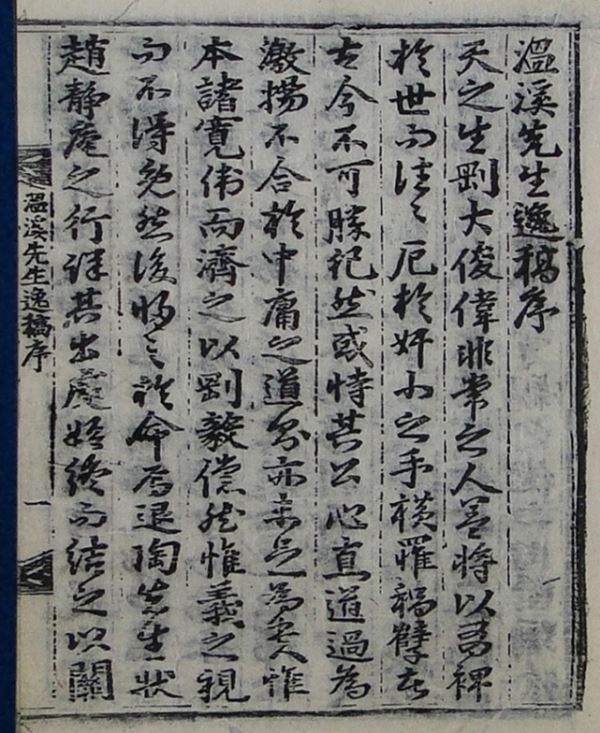 溫溪先生逸稿序
天之生剛大俊偉非常之人蓋將以有裨
於世而往々厄於奸小之手橫罹禍孽者
古今不可勝記然或恃其公心直道過爲
激揚不合於中庸之道亦未足爲人惟
本諸寬偉而濟之以剛毅儻然惟義之視
而不得免然後歸之於命焉退陶先生狀
趙靜庵之行詳其出處始終而結之以關
溫溪先生逸稿序
一